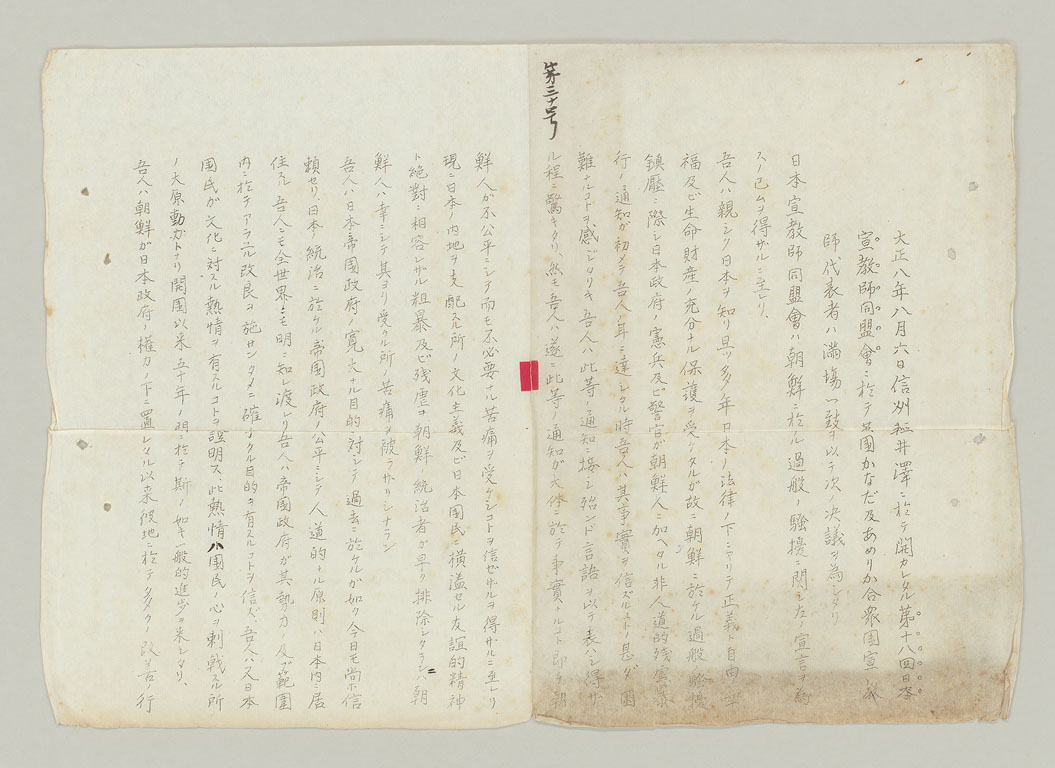 大正八年八月六日信州軽井澤ニ於テ開カレタル第十八回日本
宣教師同盟會ニ於テ英國かなだ及あめりか合衆國宣教
師代表者ハ満場一致ヲ以テ次ノ决議ヲ為シタリ
日本宣教師同盟會ハ朝鮮ニ於ル過般ノ騒擾ニ関シ左ノ宣言ヲ為
スノ已ムヲ得ザルニ至レリ、
吾人ハ親シク日本ヲ知リ且ツ多年日本ノ法律ノ下ニ在リテ正義ト自由ト幸
福及ビ生命財産ノ充分ナル保護ヲ受ケタルガ故ニ朝鮮ニ於ケル過般ノ騒擾
鎮壓ニ際シ日本政府ノ憲兵及ビ警官ガ朝鮮人ニ加ヘタル非人道的残虐暴
行ノ通知ガ初メテ吾人ノ耳ニ達シタル時吾人ハ其事實ヲ信ズルコトノ甚ダ困
難ナルコトヲ感ジタリキ吾人ハ此等ノ通知ニ接シ殆ンド言語ヲ以テ表ハシ得ザ
ル程ニ驚キタリ、然モ吾人ハ遂ニ此等ノ通知ガ大体ニ於テ事實ナルコト即チ朝
第三十号
鮮人ガ不公平ニシテ而モ不必要ナル苦痛ヲ受ケシコトヲ信ゼザルヲ得ザルニ至レリ
現ニ日本ノ内地ヲ支配スル所ノ文化主義及ビ日本國民ニ横溢セル友誼的精神
ト絶對ニ相容レザル粗暴及ビ残虐ヲ朝鮮ノ統治者ガ早ク排除シタランニハ朝
鮮人ハ幸ニシテ其ヨリ受クル所ノ苦痛ヲ被ラザリシナラン
吾人ハ日本帝國政府ノ寛大ナル目的ニ対シテ過去ニ於ケルガ如ク今日モ尚ホ信
頼セリ、日本統治ニ於ケル帝國政府ノ公平ニシテ人道的ナル原則ハ日本内ニ居
住スル吾人ニモ全世界ニモ明ニ知レ渡レリ吾人ハ帝國政府ガ其勢力ノ及ブ範圍
内ニ於テアラユル改良ヲ施サンタメニ確乎タル目的ヲ有スルコトヲ信ズ、吾人ハ又日本
國民ガ文化ニ対スル熱情ヲ有スルコトヲ證明ス、此熱情ハ國民ノ心ヲ刺戟スル所
ノ大原動力トナリ開國以来五十年ノ間ニ於テ斯ノ如キ一般的進歩ヲ来シタリ、
吾人ハ朝鮮ガ日本政府ノ權力ノ下ニ置レタル以来彼地ニ於テ多クノ改善ノ行